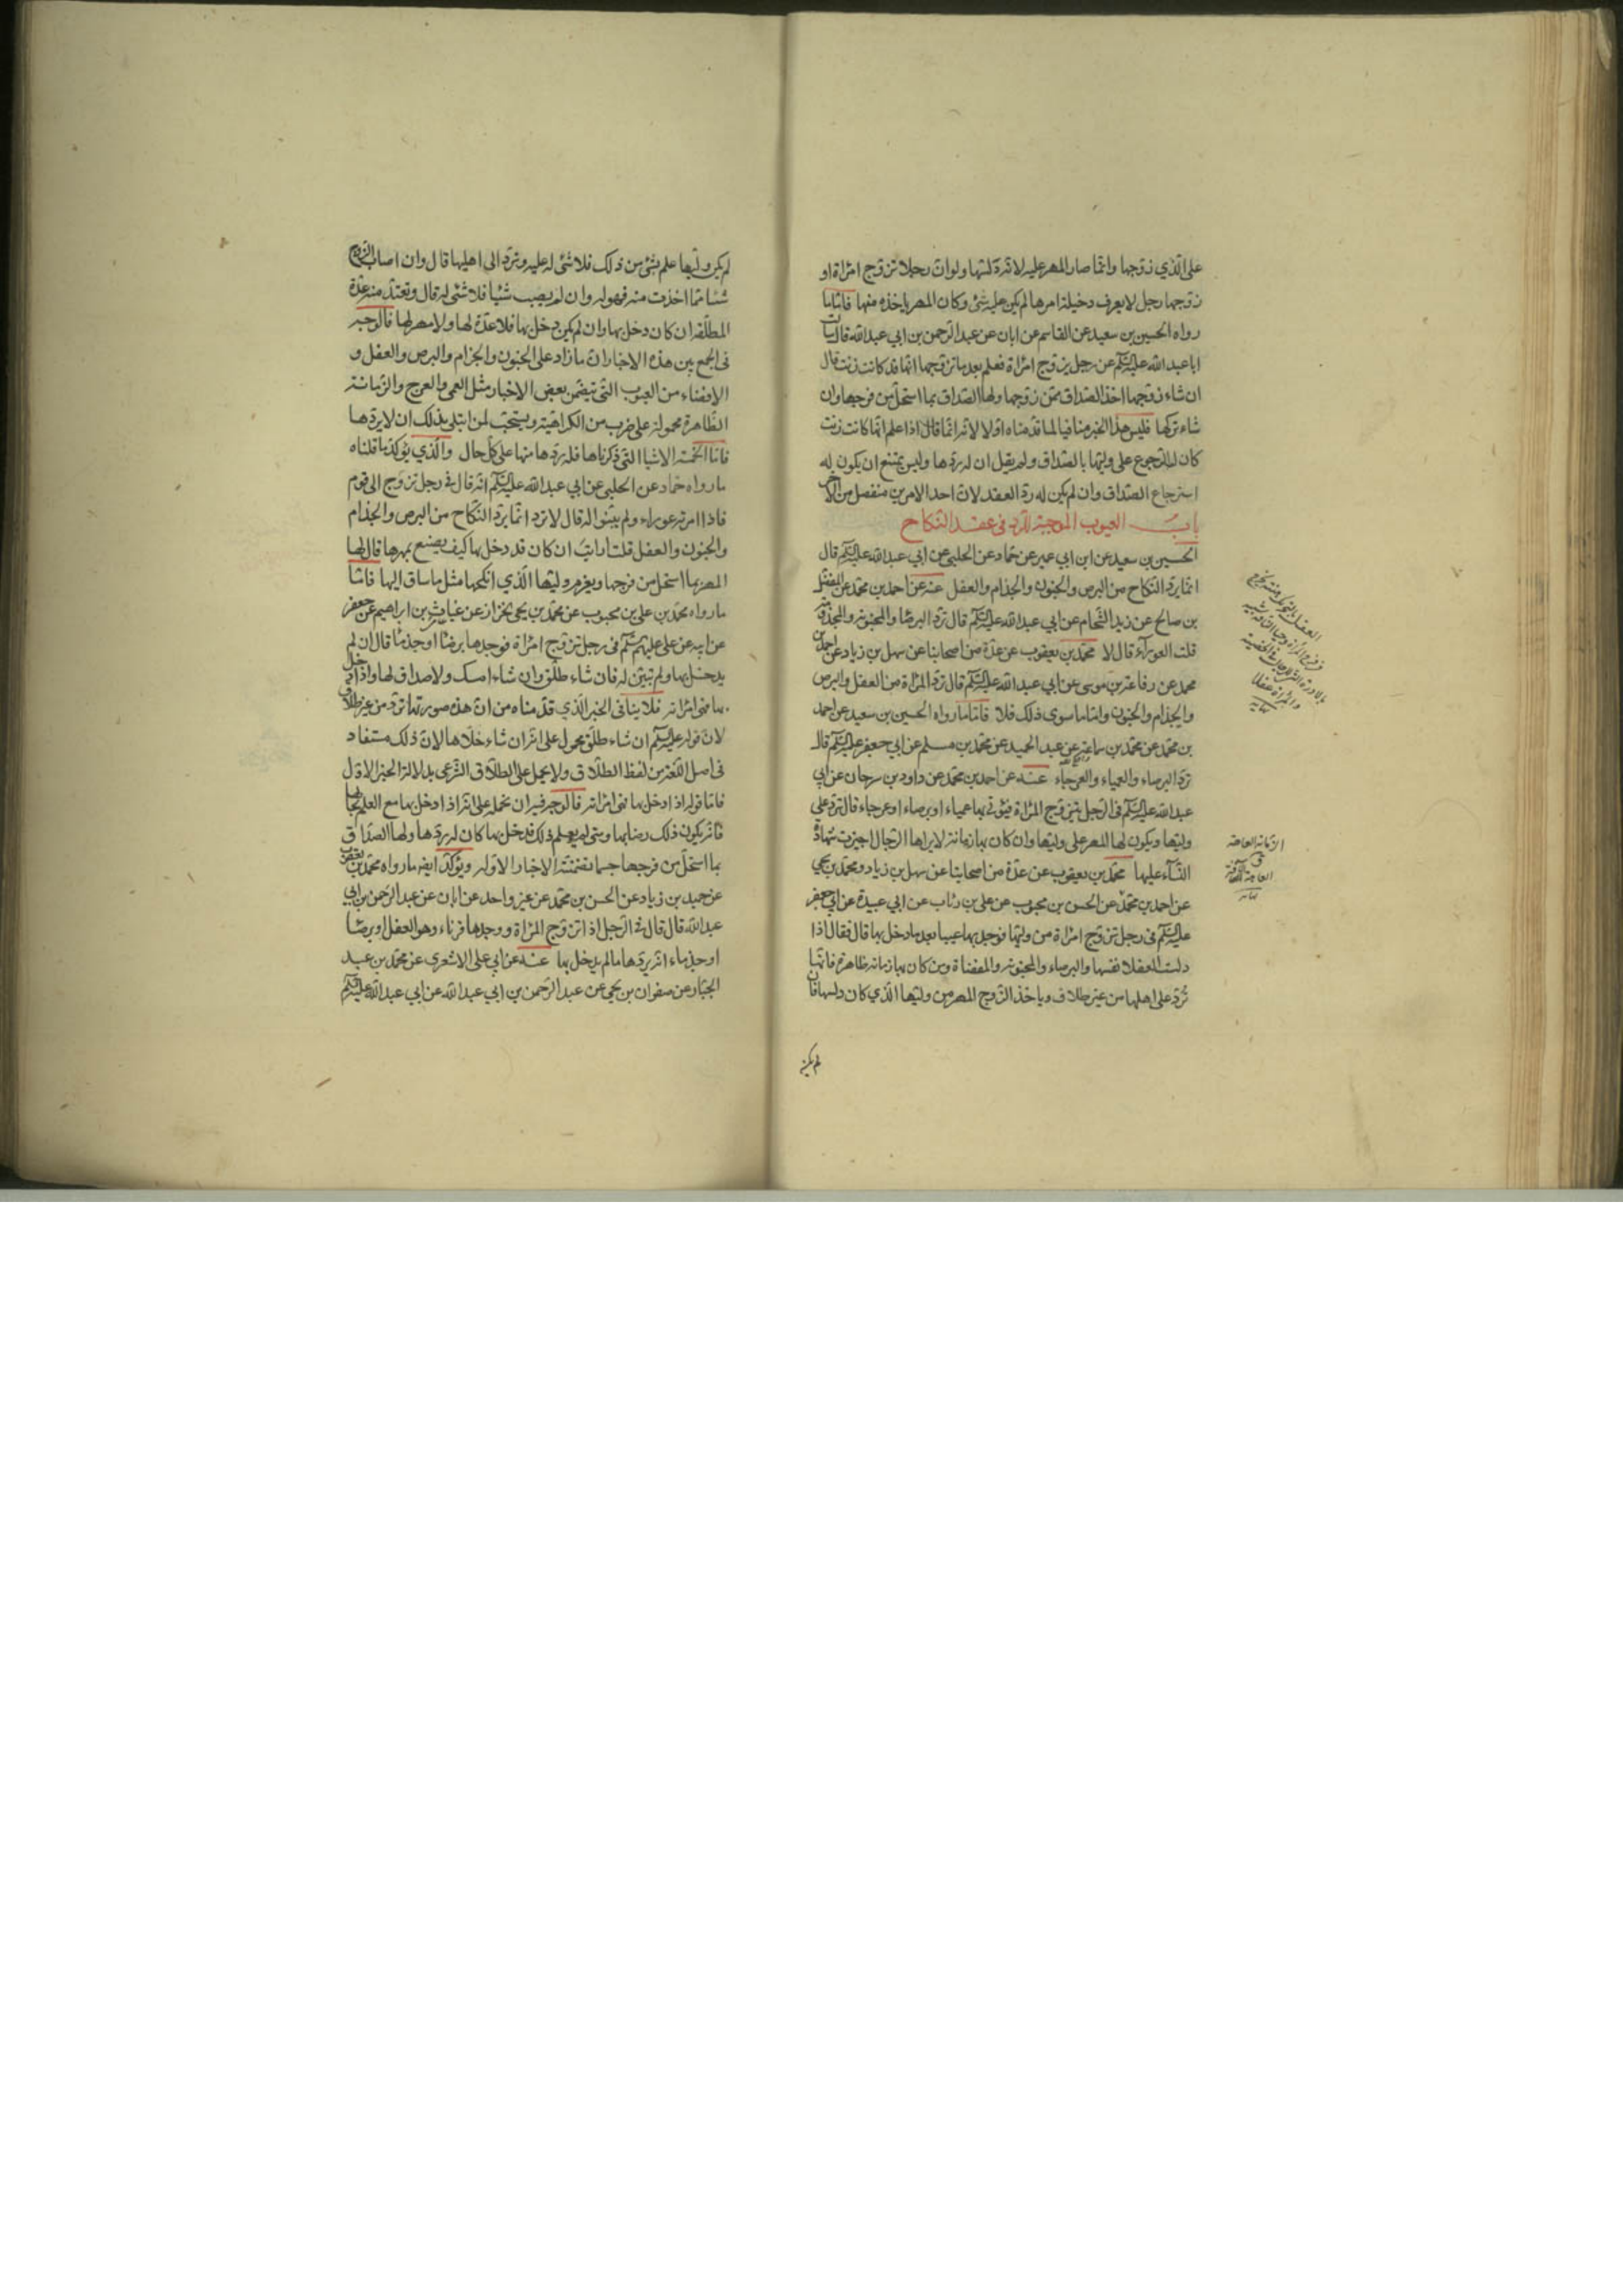 على الذي زوجها وانما صار المهر عليه لانه دلسها ولو ان رجلا تزوج امراة او
زوجها رجل لا يعرف دخيلة امرها لم يكن عليه شئ وكان المهر ياخذه منها فاما ما
رواه الحسين بن سعيد عن القاسم عن ابان عن عبد الرحمن بن ابي عبد الله قال سالت
ابا عبد الله عليه السلم عن رجل يزوج امراة فعلم بعد ما تزوجها انها قد كانت زنت قال
ان شاء زوجها اخذ الصداق ممن زوجها ولها الصداق بما استحل من فرجها وان
شاء تركها فليس هذا الخبر منافيا لما قدمناه اولا لانه انما قال اذا علم انها كانت زنت
كان له الرجوع على وليها بالصداق ولم يقل ان له ردها وليس يمتنع ان يكون له
استرجاع الصداق وان لم يكن له رد العقد لان احد الامرين منفصل من الاخر
باب العيوب الموجبة للرد في عقد النكاح
الحسين بن سعيد عن ابن ابي عمير عن حماد عن الحلبي عن ابي عبد الله عليه السلم قال
انما يرد النكاح من البرص والجنون والجذام والعفل عنه عن احمد بن محمد عن المفضل
بن صالح عن زيد الشحام عن ابي عبد الله عليه السلم قال ترد البرصا والمجنونة والمجذومة
قلت العوراء قال لا محمد بن يعقوب عن عدة من اصحابنا عن سهل بن زياد عن احمد بن
محمد عن رفاعة بن موسى عن ابي عبد الله عليه السلم قال ترد المراة من العفل والبرص
والجذام والجنون واما ما سوى ذلك فلا فاما ما رواه الحسين بن سعيد عن احمد
بن محمد عن محمد بن سماعة عن عبد الحميد عن محمد بن مسلم عن ابي جعفر عليه السلم قال
ترد البرصاء والعمياء والعرجاء عنه عن احمد بن محمد عن داود بن سرحان عن ابي
عبد الله عليه السلم في الرجل يتزوج المراة فيؤتى بها عمياء او برصاء او عرجاء قال ترد على
وليها ويكون لها المهر على وليها وان كان بها زمانة لا يراها الرجال اجيزت شهادة
النساء عليها محمد بن يعقوب عن عدة من اصحابنا عن سهل بن زياد ومحمد بن يحيى
عن احمد بن محمد عن الحسن بن محبوب عن علي بن رئاب عن ابي عبيدة عن ابي جعفر
عليه السلم في رجل تزوج امراة من وليها فوجد بها عيبا بعد ما دخل بها قال فقال اذا
دلست العفلا نفسها والبرصاء والمجنونة والمفضاة ومن كان بها زمانة ظاهرة فانها
ترد على اهلها من غير طلاق وياخذ الزوج المهر من وليها الذي كان دلسها فان
لم يكن
لم يكن وليها علم بشئ من ذلك فلا شئ له عليه وترد الى اهليها قال وان اصاب الزوج
شيئا مما اخذت منه فهو له وان لم يصب شيئا فلا شئ له قال وتعتد منه عدة
المطلقة ان كان دخل بها وان لم يكن دخل بها فلا عدة لها ولا مهر لها فالوجه
في الجمع بين هذه الاخبار ان ما زاد على الجنون والجزام والبرص والعفل و
الافضاء من العيوب التي يتضمن بعض الاخبار مثل العمى والعرج والزمانة
الظاهرة محمولة على ضرب من الكراهية ويستحب لمن ابتلي بذلك ان لا يردها
فاما الخمسة الاشيا التي ذكرناها فله ردها منها على كل حال والذي يؤكد ما قلناه
ما رواه حماد عن الحلبي عن ابي عبد الله عليه السلم انه قال في رجل تزوج الى قوم
فاذا امرته عوراء ولم يبينوا له قال لا ترد انما يرد النكاح من البرص والجذام
والجنون والعفل قلت ارايت ان كان قد دخل بها كيف يصنع بمهرها قال لها
المهر بما استحل من فرجها ويغرم وليها الذي انكحها مثل ما ساق اليها فاما
ما رواه محمد بن علي بن محبوب عن محمد بن يحيى الخزاز عن غياث بن ابراهيم عن جعفر
عن ابيه عن علي عليهم السلم في رجل تزوج امراة فوجدها برصا او جذما قال ان لم
يدخل بها ولم تبين له فان شاء طلق وان شاء امسك ولا صداق لها واذا دخل
بها فهي امراته فلا ينافي الخبر الذي قدمناه من ان هذه صورتها ترد من غير طلاق
لان قوله عليه السلم ان شاء طلق محمول على انه ان شاء خلاها لان ذلك مستفاد
في اصل اللغة من لفظ الطلاق ولا يحمل على الطلاق الشرعي بدلالة الخبر الاول
فاما قوله اذا دخل بها فهي امراته فالوجه فيه ان نحمله على انه اذا دخل بها مع العلم بحالها
فانه يكون ذلك رضا بها ومتى لم يعلم ذلك فدخل بها كان له ردها ولها الصداق
بما استحل من فرجها حسبما تضمنته الاخبار الاولة ويؤكد ايضا ما رواه محمد بن يعقوب
عن حميد بن زياد عن الحسن بن محمد عن غير واحد عن ابان عن عبد الرحمن بن ابي
عبد الله قال قال في الرجل اذا تزوج المراة ووجدها قرناء وهو العفل او برصا
او جذماء انه يردها ما لم يدخل بها عنه عن ابي علي الاشعري عن محمد بن عبد
الجبار عن صفوان بن يحيى عن عبد الرحمن بن ابي عبد الله عن ابي عبد الله عليه السلم